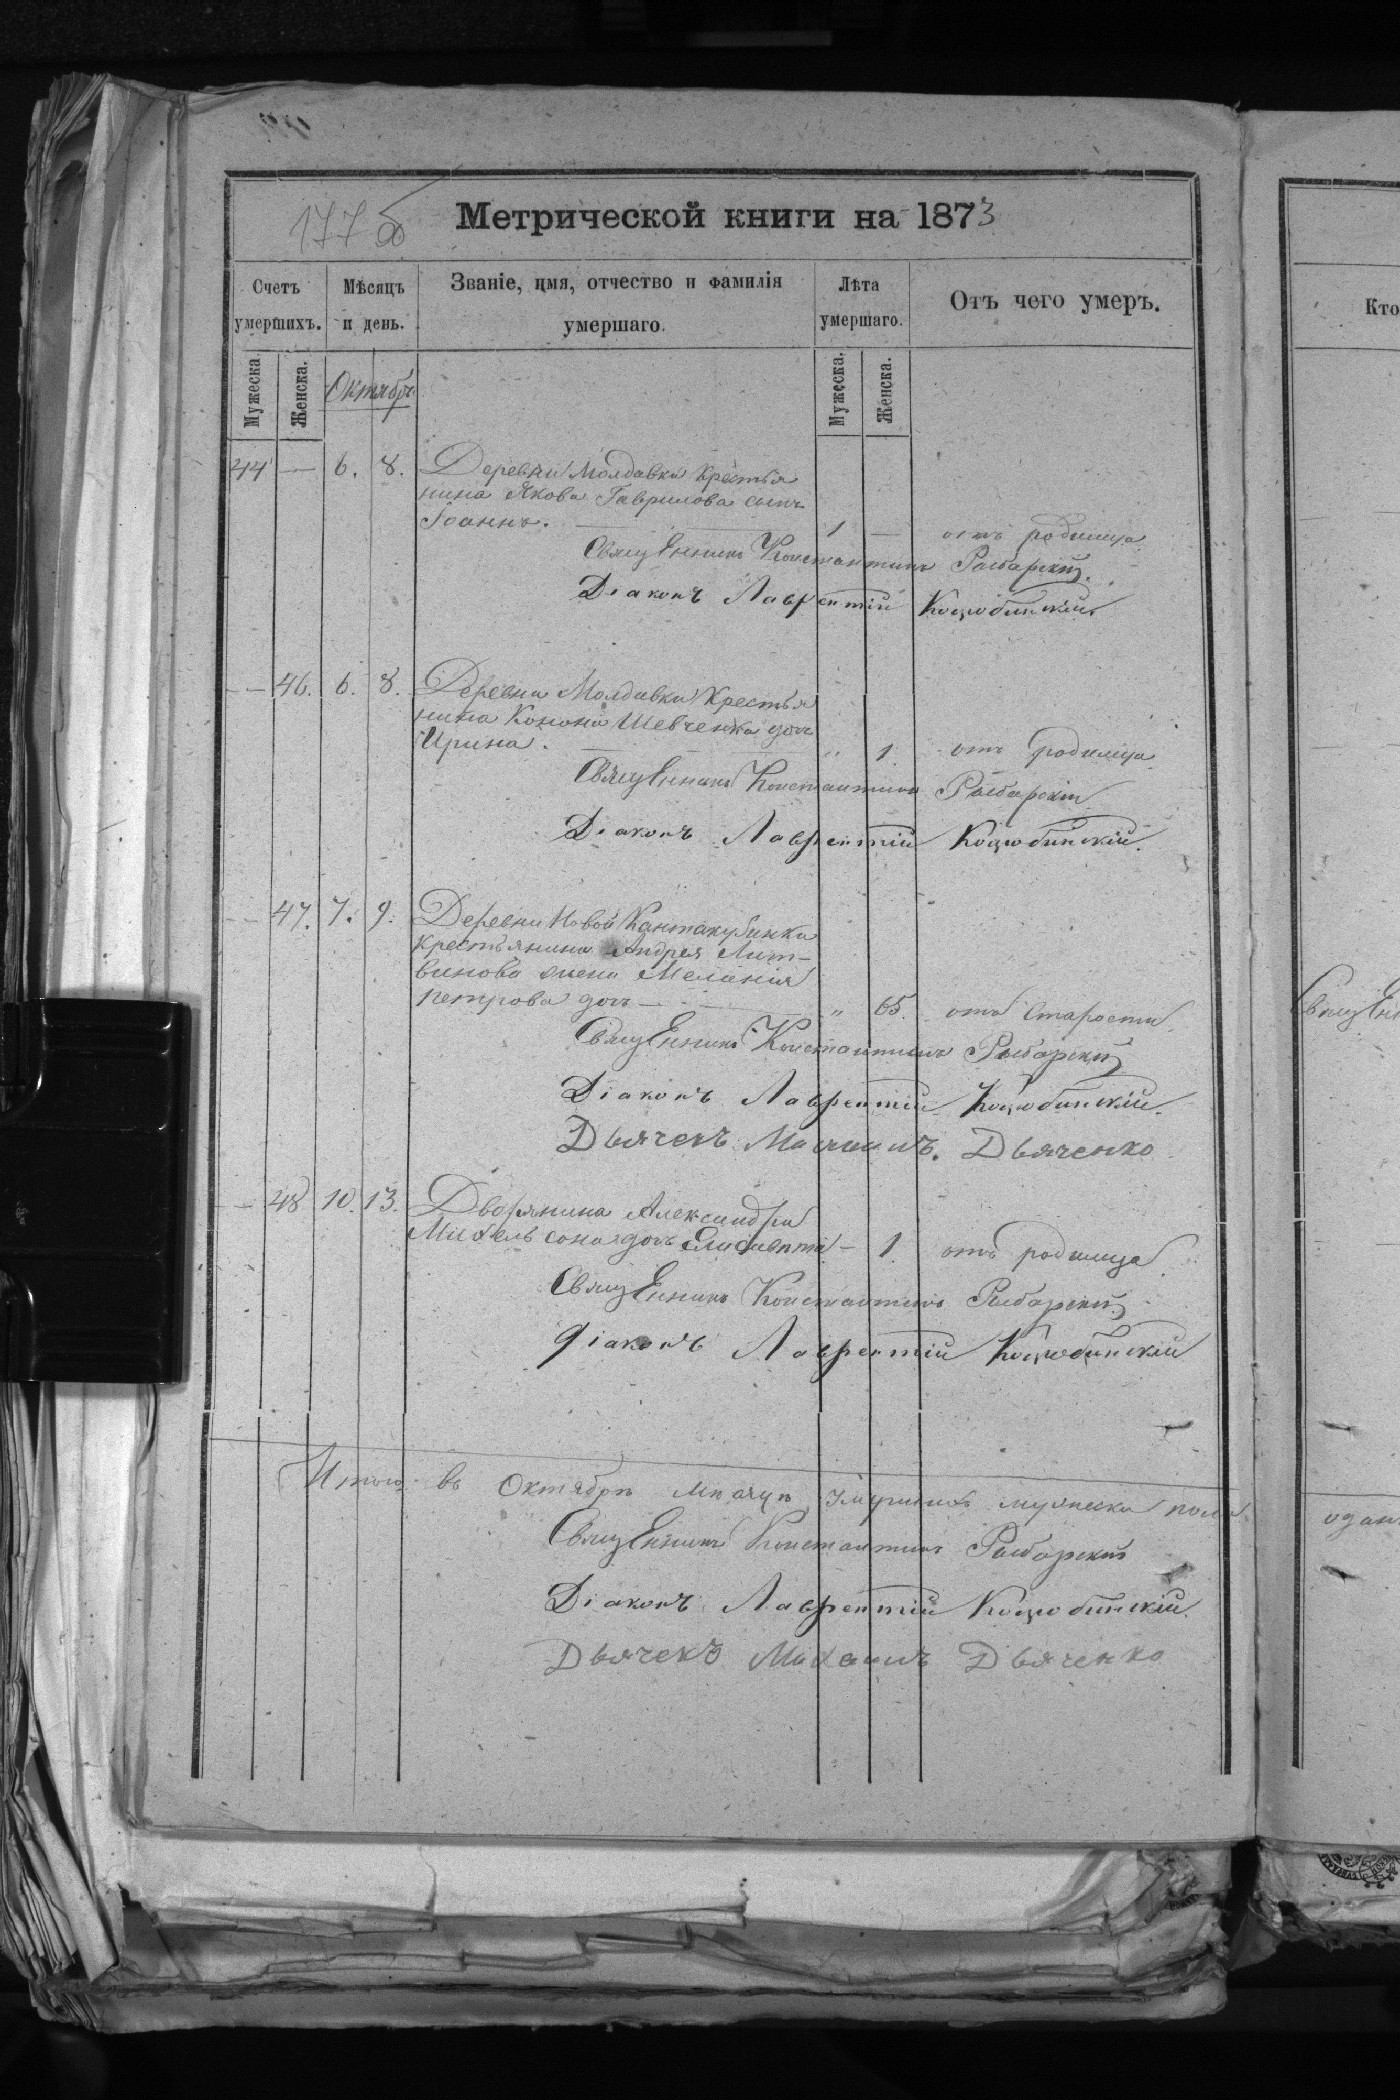 177б
Метрической книги на 1873
Счетъ умершихъ.
Мѣсяцъ и день.
Званіе, имя, отчество и фамилія умершаго.
Лѣта умершаго.
Отъ чего умеръ.
Кто
Мужеска.
Женска.
Октябрь
Мужеска.
Женска.
44 — 6. 8. Деревни Молдавки крестья
нина Якова Гаврилова сынъ
Іоаннъ. — 1 — отъ родимца
Священникъ Константинъ Рыбарскій.
Діаконъ Лаврентій Коцюбинскій.
— 46. 6. 8. Деревни Молдавки Крестья
нина Конона Шевченка дочь
Ирина. — „ 1. отъ родимца
Священникъ Константинъ Рыбарскій
Діаконъ Лаврентій Коцюбинскій.
— 47. 7. 9. Деревни Новой Кантакузинки
крестьянина Андрея Лит-
винова жена Меланія
петрова дочь — „ 65. отъ старости
Священникъ Константинъ Рыбарскій
Діаконъ Лаврентій Коцюбинскій.
Дьячекъ Михаилъ. Дьяченко
— 48 10. 13. Дворянина Александра
дочь Елисавета — 1. отъ родимца
Священникъ Константинъ Рыбарскій
Діаконъ Лаврентій Коцюбинскій
Итого въ Октябрѣ мѣсяцѣ умершихъ мужеска пола
Священникъ Константинъ Рыбарскій
Діаконъ Лаврентій Коцюбинскій.
Дьячекъ Михаилъ Дьяченко